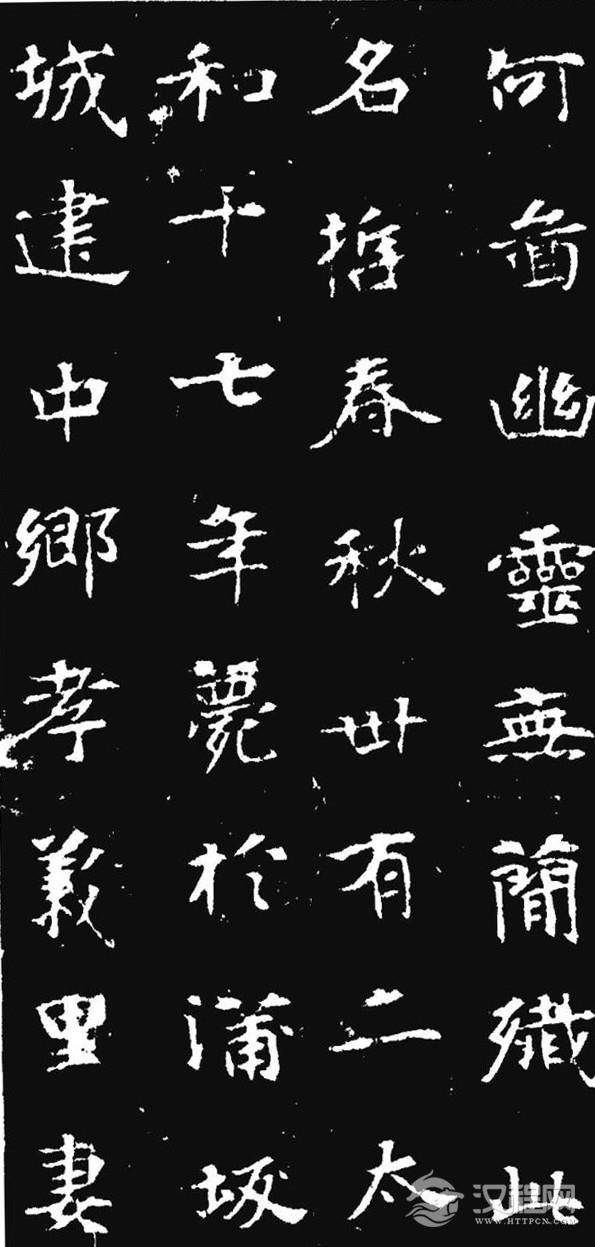 何啚幽靈無簡殲此
名哲春秋卅有二太
和十七年薨於蒲坂
城建中鄉孝義里妻
汉程网
WWW.HTTPCN.COM